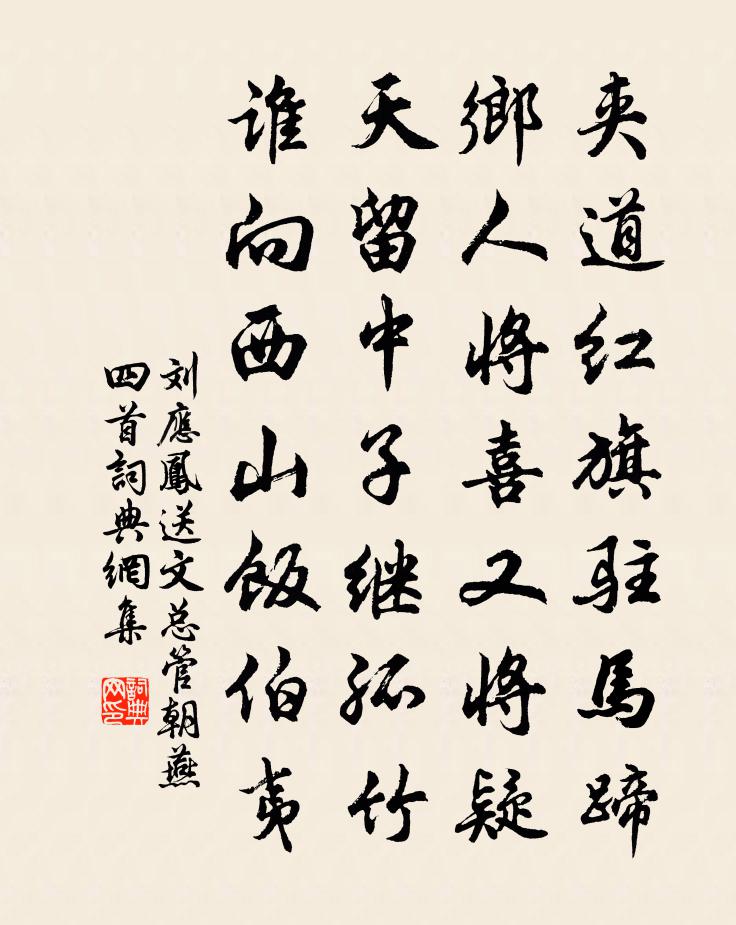 夹道红旗驻馬蹄
鄉人将喜又将疑
天留中子继孤竹
谁向西山飯伯夷
刘應鳳送文总管朝燕
四首詞典網集
詞典
网印